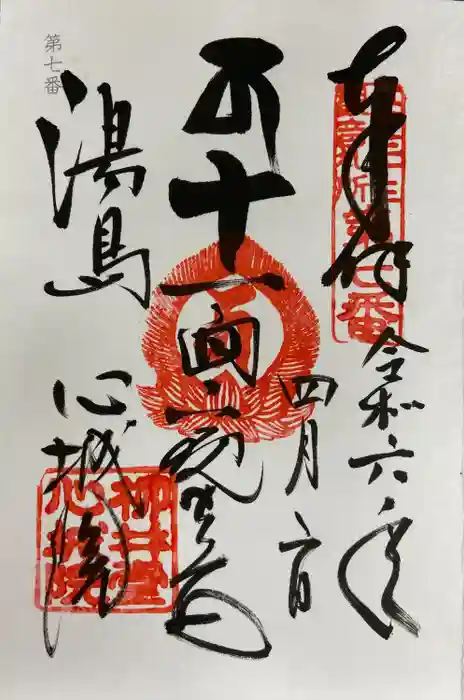 第七番
奉拝
札所第七番
令和六年
四月
十一面観世音
湯島
心城院
柳井堂
心城院